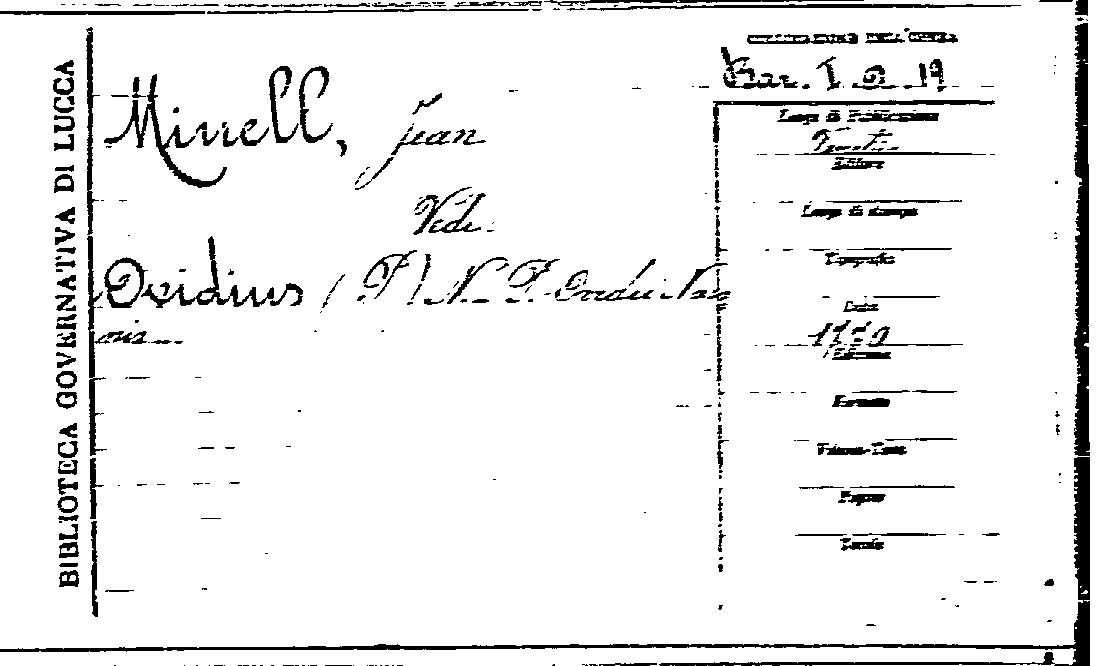 BIBLIOTECA GOVERNATIVA DI LUCCA
Minell, Jean
Vedi.
Ovidius (P) N. P. Ovidii Nas
onis
COLLOCAZIONE DELL'OPERA
Bar. I. 2. 19
Luogo di Pubblicazione
Editore
Luogo di stampa
Tipografia
Data
Edizione
Formato
Volume-Tomo
Pagine
Tavole